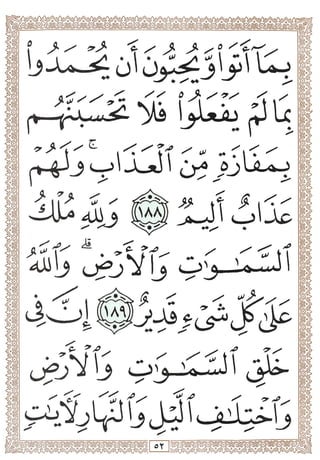 بِمَآ أَتَوا۟ وَّيُحِبُّونَ أَن يُحْمَدُوا۟
بِمَا لَمْ يَفْعَلُوا۟ فَلَا تَحْسَبَنَّهُم
بِمَفَازَةٍ مِّنَ ٱلْعَذَابِ ۖ وَلَهُمْ
عَذَابٌ أَلِيمٌ ١٨٨ وَلِلَّهِ مُلْكُ
ٱلسَّمَـٰوَٰتِ وَٱلْأَرْضِ ۗ وَٱللَّهُ
عَلَىٰ كُلِّ شَىْءٍ قَدِيرٌ ١٨٩ إِنَّ فِى
خَلْقِ ٱلسَّمَـٰوَٰتِ وَٱلْأَرْضِ
وَٱخْتِلَـٰفِ ٱلَّيْلِ وَٱلنَّهَارِ لَـَٔايَـٰتٍ
٥٢